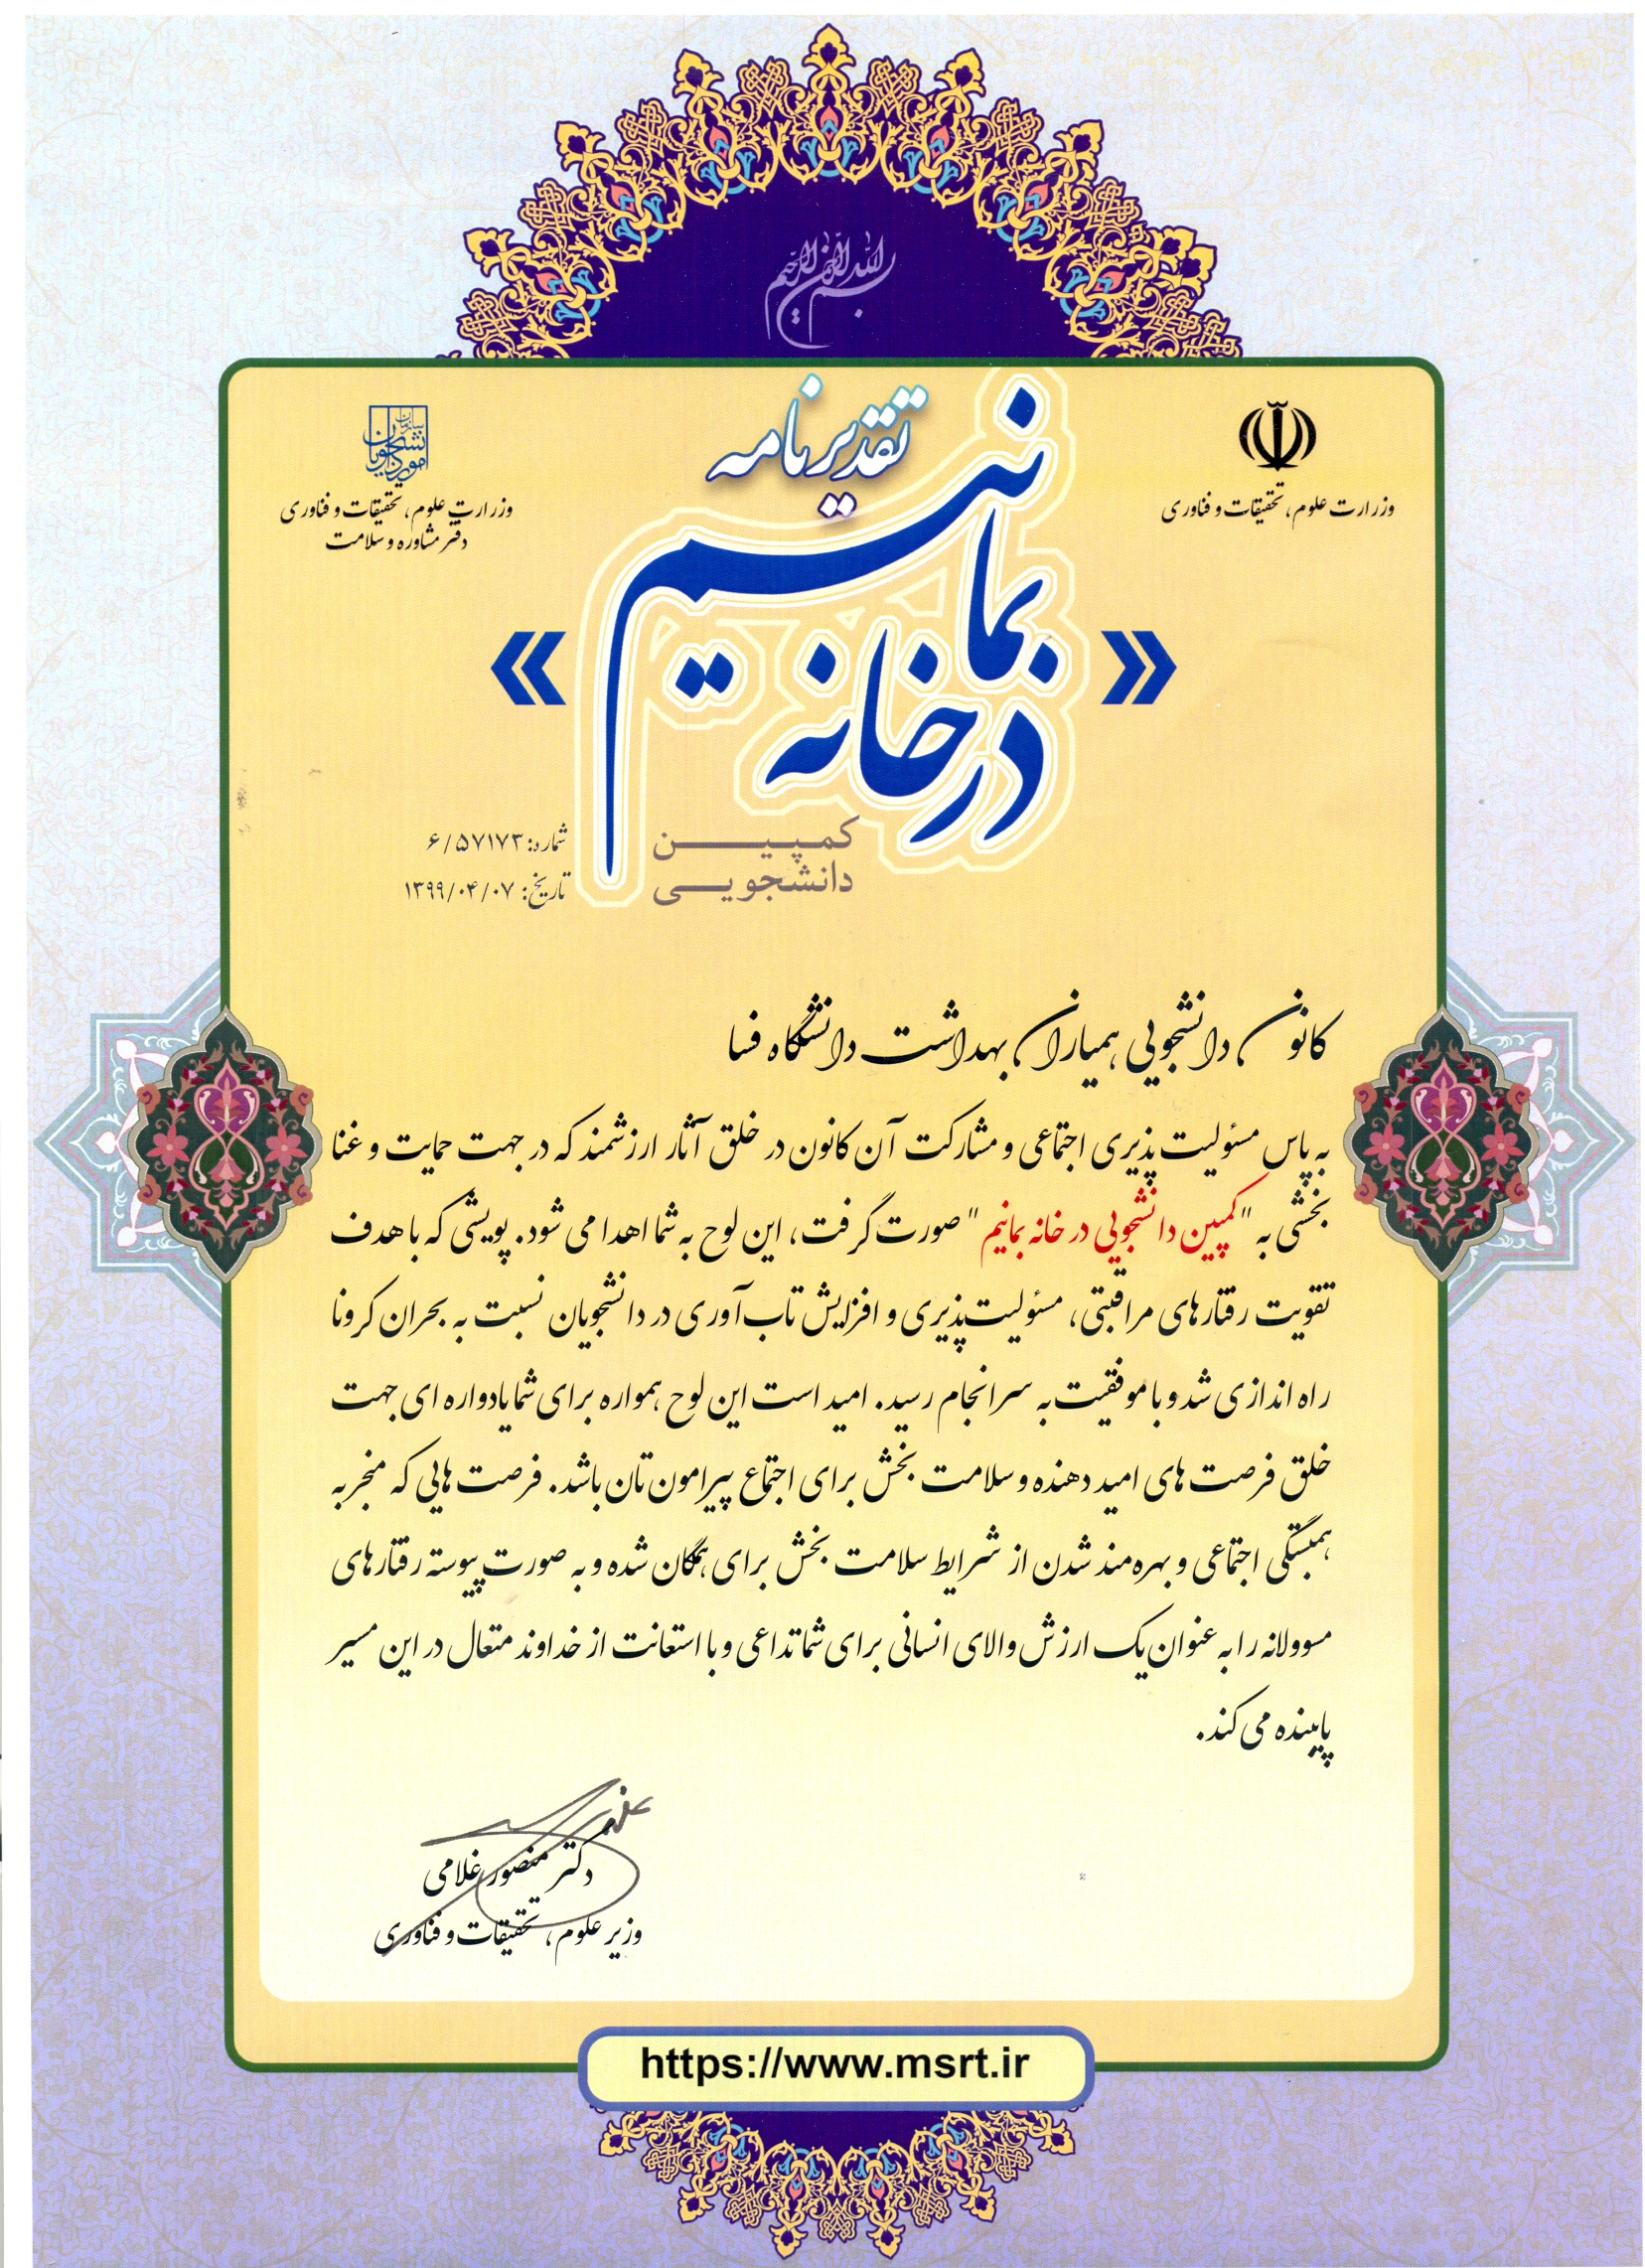 بسم الله الرحمن الرحیم
تقدیرنامه
وزارت علوم، تحقیقات و فناوری
سازمان امور دانشجویان
وزارت علوم، تحقیقات و فناوری
دفتر مشاوره و سلامت
«در خانه بمانیم»
کمپین
دانشجویی
شماره: ۶/۵۷۱۷۳
تاریخ: ۱۳۹۹/۰۴/۰۷
کانون دانشجویی همیاران بهداشت دانشگاه فسا
به پاس مسئولیت پذیری اجتماعی و مشارکت آن کانون در خلق آثار ارزشمند که در جهت حمایت و غنا
بخشی به "کمپین دانشجویی در خانه بمانیم" صورت گرفت، این لوح به شما اهدا می شود. پویشی که با هدف
تقویت رفتارهای مراقبتی، مسئولیت‌پذیری و افزایش تاب آوری در دانشجویان نسبت به بحران کرونا
راه اندازی شد و با موفقیت به سرانجام رسید. امید است این لوح همواره برای شما یادواره ای جهت
خلق فرصت های امید دهنده و سلامت بخش برای اجتماع پیرامون تان باشد. فرصت هایی که منجر به
همبستگی اجتماعی و بهره مند شدن از شرایط سلامت بخش برای همگان شده و به صورت پیوسته رفتارهای
مسوولانه را به عنوان یک ارزش والای انسانی برای شما تداعی و با استعانت از خداوند متعال در این مسیر
پاینده می کند.
دکتر منصور غلامی
وزیر علوم، تحقیقات و فناوری
https://www.msrt.ir